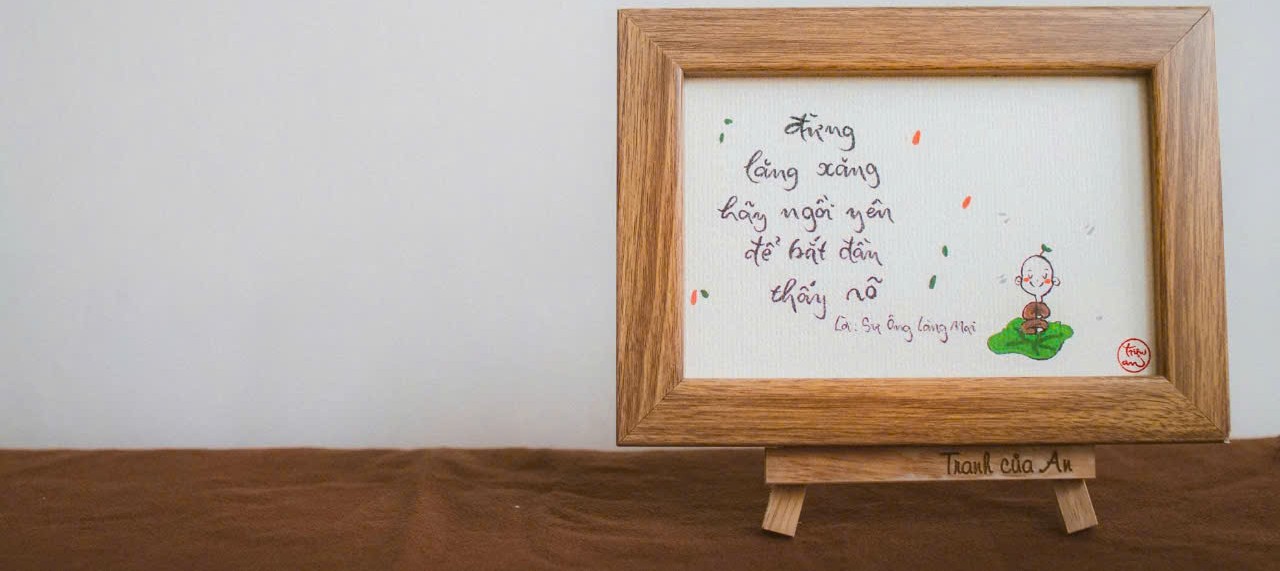 đừng
lăng xăng
hãy ngồi yên
để bắt đầu
thấy rõ
Lời: Sư Ông Làng Mai
triệu
an
Tranh của An